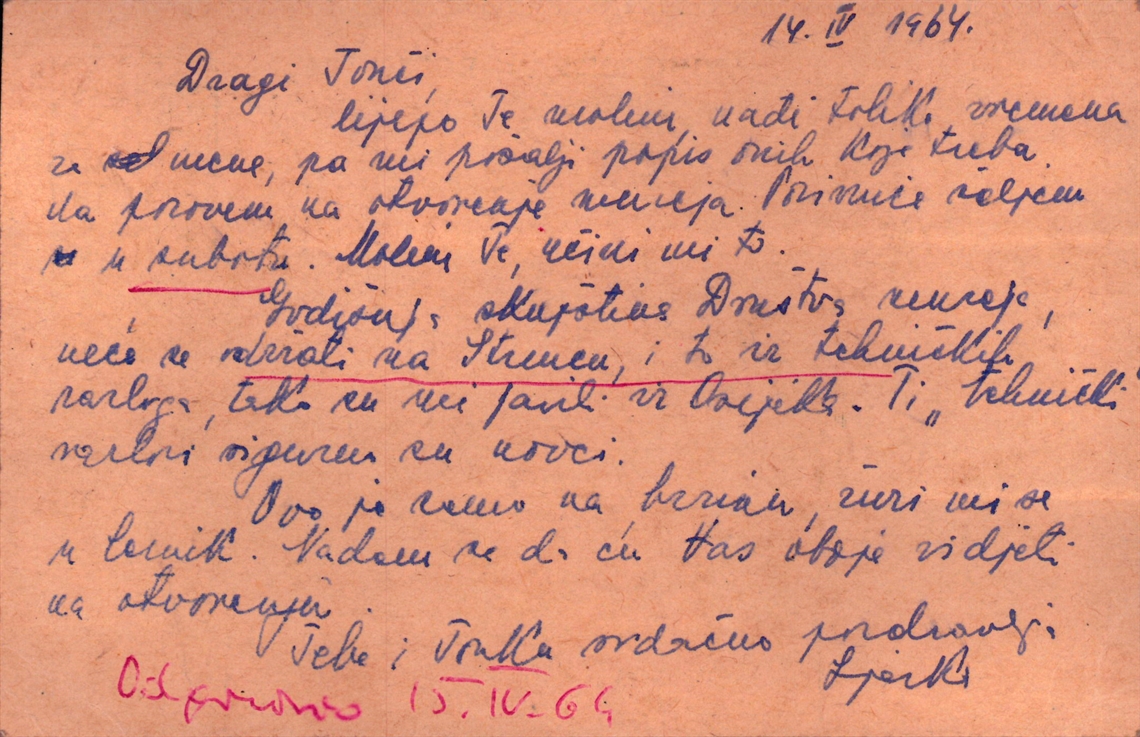 14. IV 1964.
Dragi Tonči,
lijepo Te molim, nađi toliko vremena
za mene, pa mi pošalji popis onih koje treba
da pozovem na otvorenje muzeja. Pozivnice šaljem
u subotu. Molim Te, učini mi to.
Godišnja skupština Društva muzeja,
neće se održati na Strucu, i to iz tehničkih
razloga, tako su mi javili iz Osijeka. Ti „tehnički"
razlozi sigurno su novci.
Ovo je samo na brzinu, žuri mi se
u . Nadam se da ću Vas oboje vidjeti
na otvorenju.
Tebe i Tonka srdačno pozdravlja
Ljerka
Odgovoreno 15. IV. 64